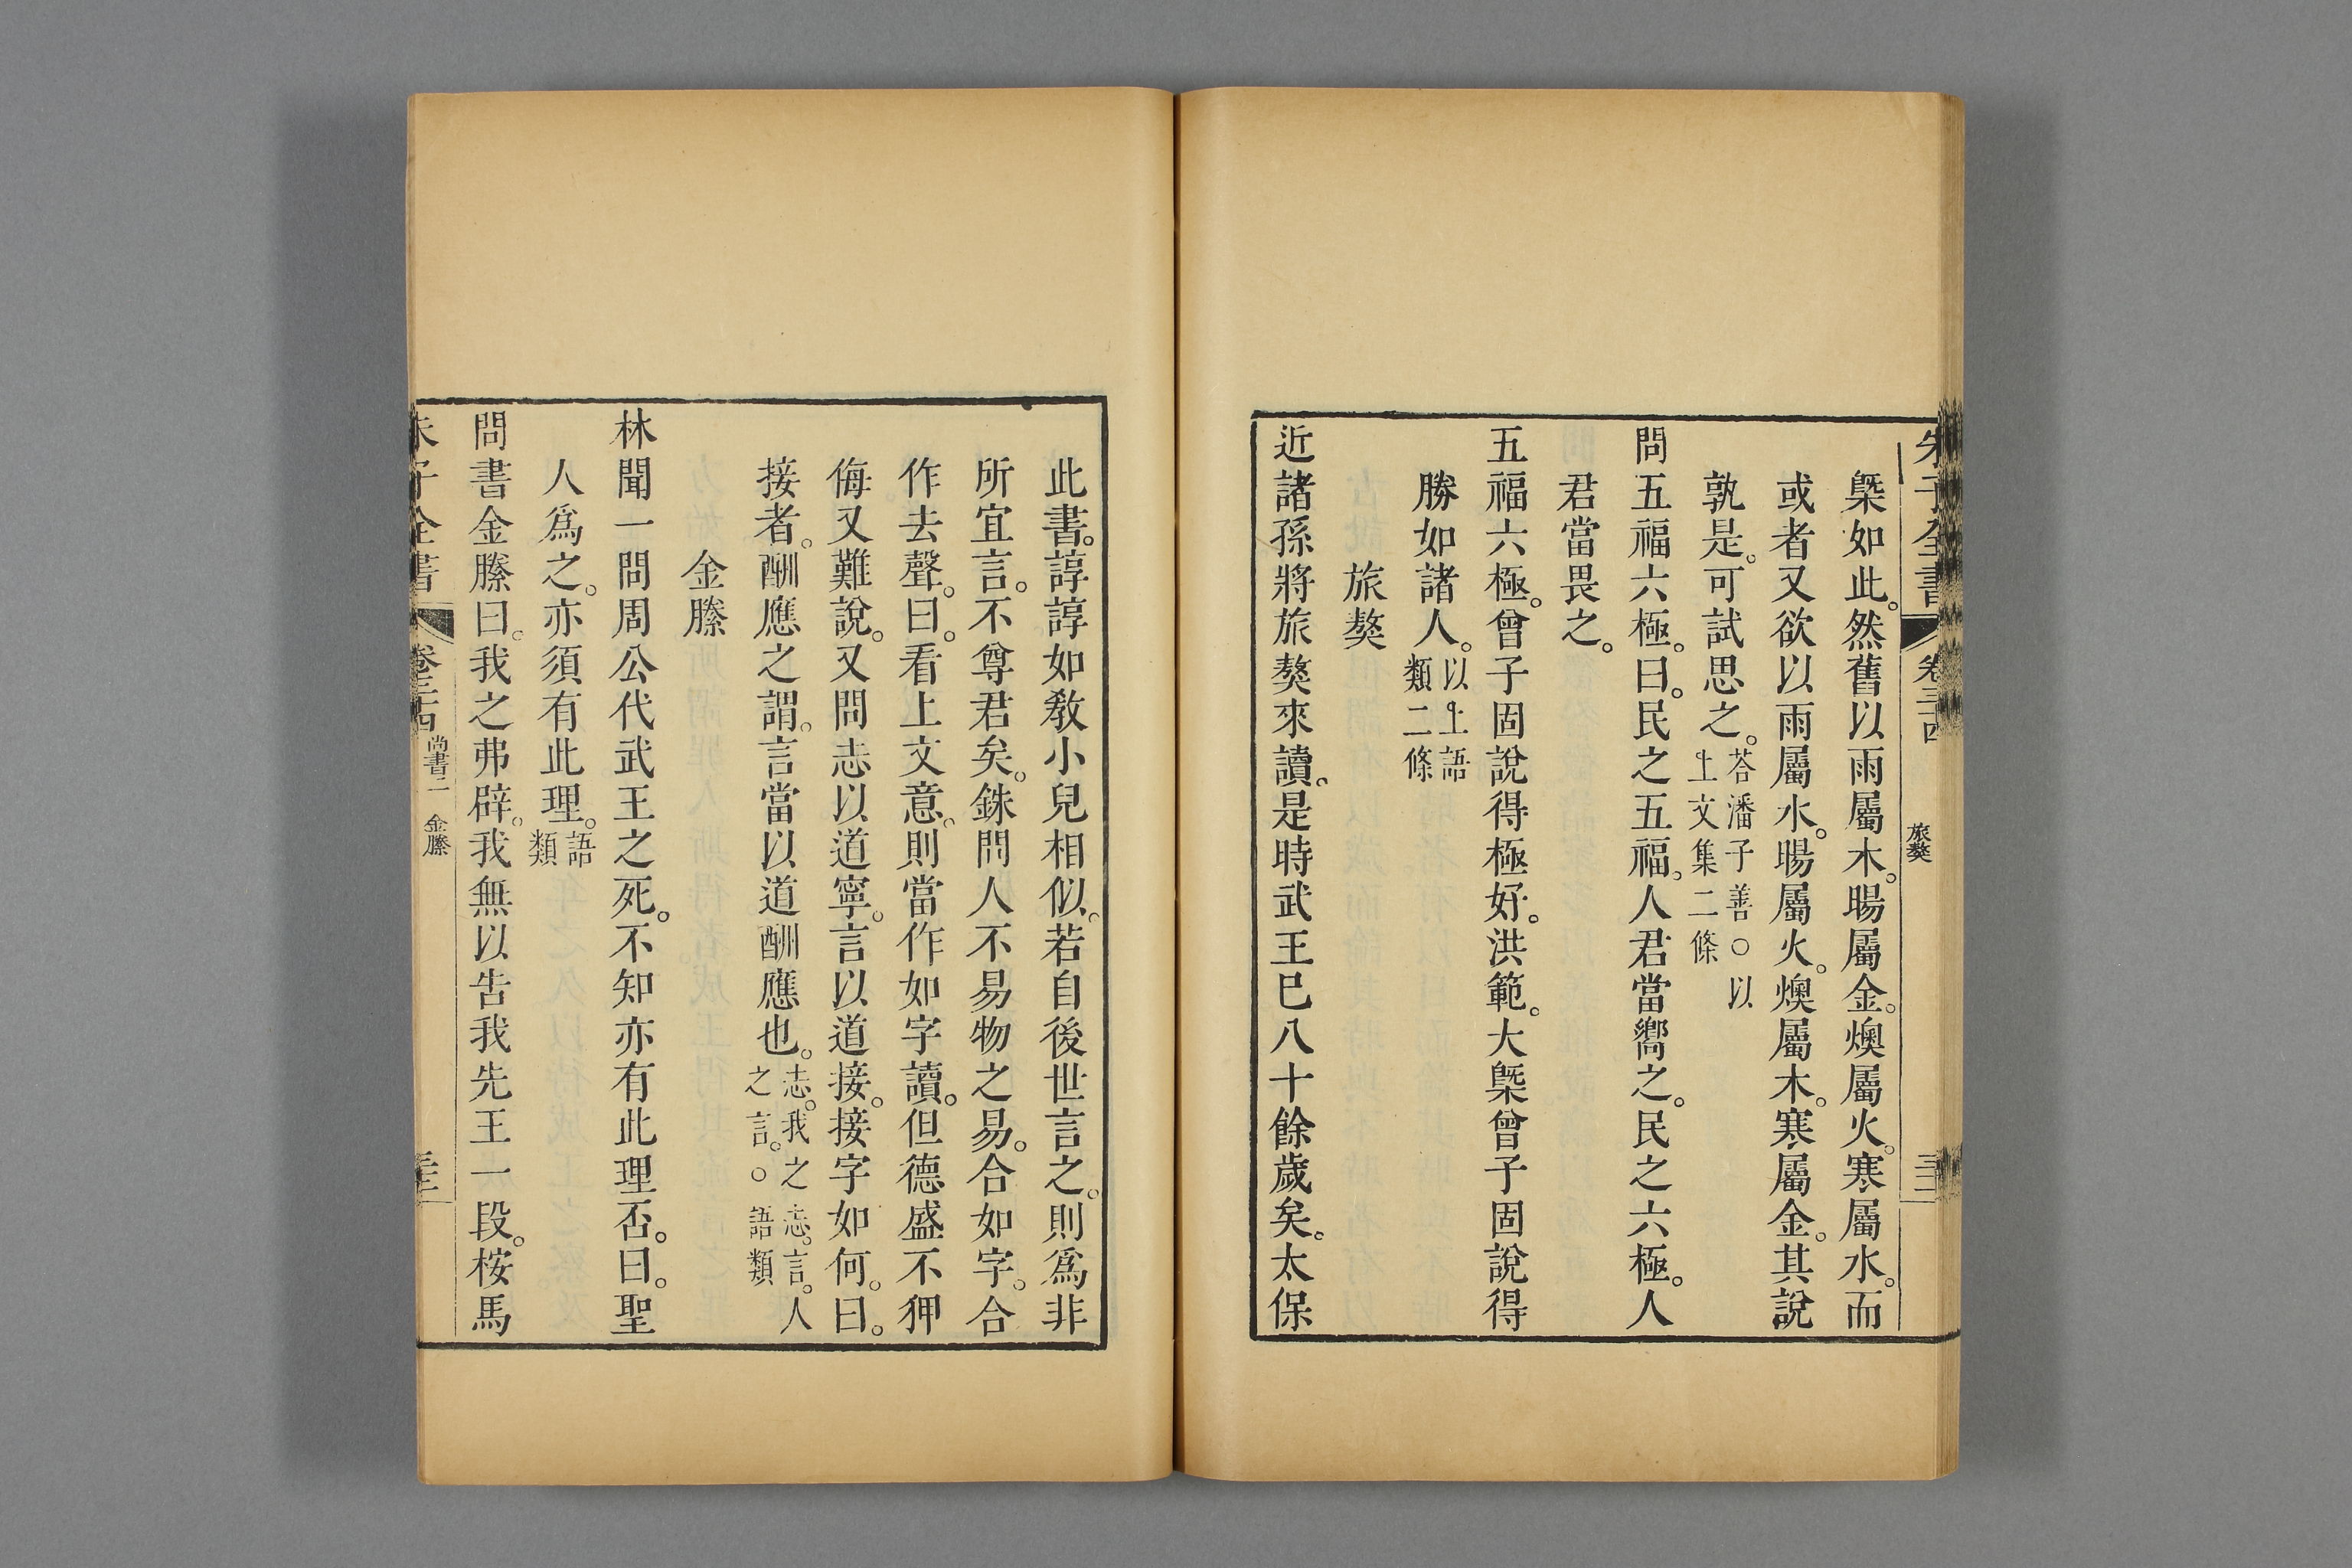 朱子全書 卷三十四 旅獒 三十二
槩如此。然舊以雨屬木。暘屬金。燠屬火。寒屬水。而
或者又欲以雨屬水。暘屬火。燠屬木。寒屬金。其說
孰是。可試思之。答潘子善○以
上文集二條
問五福六極。曰。民之五福。人君當嚮之。民之六極。人
君當畏之。
五福六極。曾子固說得極好。洪範。大槩曾子固說得
勝如諸人。以上語
類二條
旅獒
近諸孫將旅獒來讀。是時武王已八十餘歲矣。太保
此書。諄諄如教小兒相似。若自後世言之。則爲非
所宜言。不尊君矣。銖問人不易物之易。合如字。合
作去聲。曰。看上文意。則當作如字讀。但德盛不狎
侮又難說。又問志以道寧。言以道接。接字如何。曰。
接者。酬應之謂。言當以道酬應也。志。我之志。言。人
之言。○語類
金縢
林聞一問周公代武王之死。不知亦有此理否。曰。聖
人爲之。亦須有此理。語
類
問書金縢曰。我之弗辟。我無以告我先王一段。桉馬
朱子全書 卷三十四 尚書二 金縢 三十三